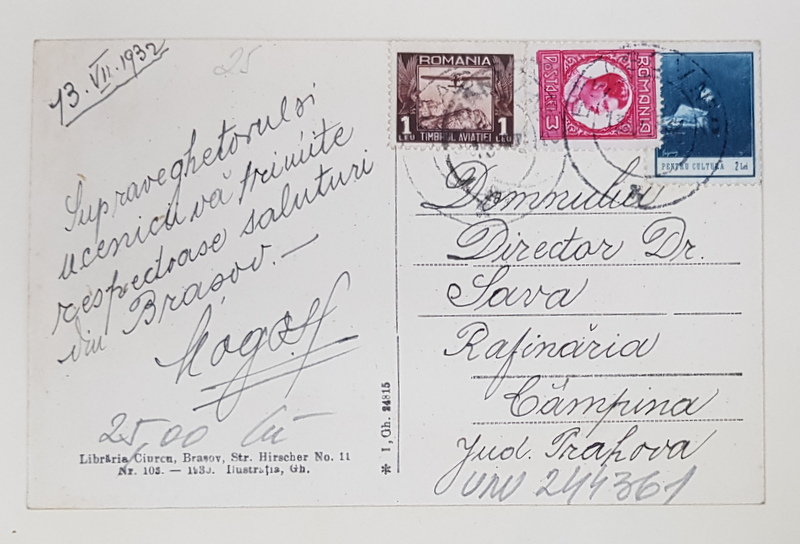 13.VII.1932
25
Supraveghetorul și
ucenicii vă trimite
respectoase saluturi
din Brașov.—
25,00
Librăria Ciurcu, Brașov, Str. Hirscher No. 11
Nr. 103. — 1930. Ilustrația, Gh.
* I, Gh. 24815
ROMANIA
1 LEU TIMBRUL AVIAȚIEI 1 LEU
ROMANIA
POSTA LEI 3
PENTRU CULTURA 2 Lei
Domnului
Director Dr.
Sava
Rafinăria
Câmpina
Jud. Prahova
244361